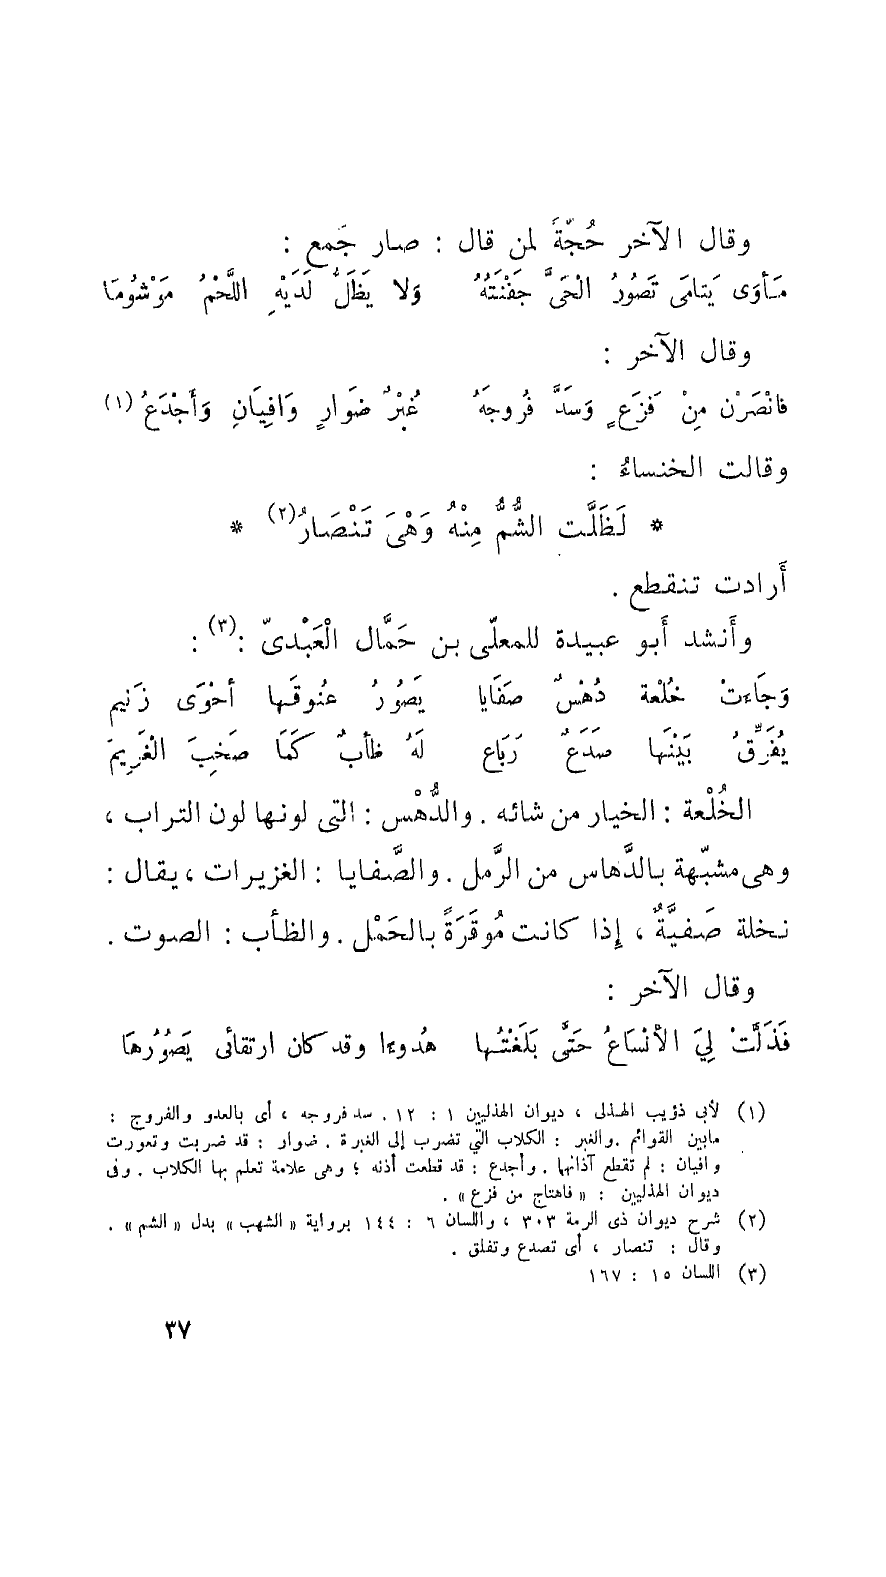 وقال الآخر حُجّةً لمن قال : صار جَمع :
مَأوَى يَتامَى تَصُورُ الْحَىَّ جَفْنَتُهُ وَلا يَظَلُّ لَدَيْهِ اللَّحْمُ مَوْشُومَا
وقال الآخر :
فانْصَرْن مِنْ فَزَعٍ وَسَدَّ فُروجَهُ غُبْرٌ ضَوَارٍ وَافِيَانِ وَأَجْدَعُ (١)
وقالت الخنساءُ :
* لَظَلَّت الشُّمُّ مِنْهُ وَهْىَ تَنْصَارُ(٢) *
أرادت تنقطع .
وأَنشد أَبو عبيدة للمعلّى بن حَمَّال الْعَبْدىّ :(٣) :
وَجَاءَتْ خُلْعة دُهْسٌ صَفَايا يَصُورُ عنُوقَها أحْوَى زَنيم
يُفَرِّقُ بَيْنَها صَدَعٌ رَبَاع لَهُ ظأبٌ كَمَا صَخِبَ الغَرِيمَ
الخُلْعة : الخيار من شائه . والدُّهْس : التى لونها لون التراب ،
وهى مشبّهة بالدَّهاس من الرَّمل . والصَّفايا : الغزيرات ، يقال :
نخلة صَفيَّةٌ ، إِذا كانت مُوقَرَةً بالحَمْل . والظأب : الصوت .
وقال الآخر :
فَذَلَّتْ لِيَ الأنْسَاعُ حَتَّى بَلَغْتُها هُدوءا وقد كان ارتقائى يَصُوُرهَا
(١) لأبى ذؤيب الهذلى ، ديوان الهذليين ١ : ١٢ . سد فروجه ، أى بالعدو والفروج :
مابين القوائم . والغبر : الكلاب التي تضرب إلى الغبرة . ضوار : قد ضربت وتعورت
وافيان : لم تقطع آذانها . وأجدع : قد قطعت أذنه ؛ وهى علامة تعلم بها الكلاب . وفى
ديوان الهذليين : « فاهتاج من فزع » .
(٢) شرح ديوان ذى الرمة ٣٠٣ ، واللسان ٦ : ١٤٤ برواية « الشهب » بدل « الشم » .
وقال : تنصار ، أى تصدع وتفلق .
(٣) اللسان ١٥ : ١٦٧
٣٧